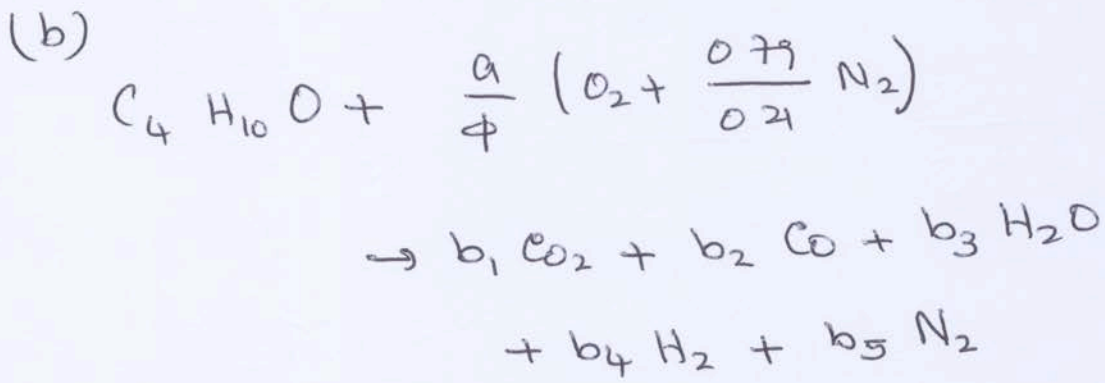 (b)
C₄ H₁₀ O + a/ϕ (O₂ + 0 79/0 21 N₂)
→ b₁ CO₂ + b₂ CO + b₃ H₂O
+ b₄ H₂ + b₅ N₂